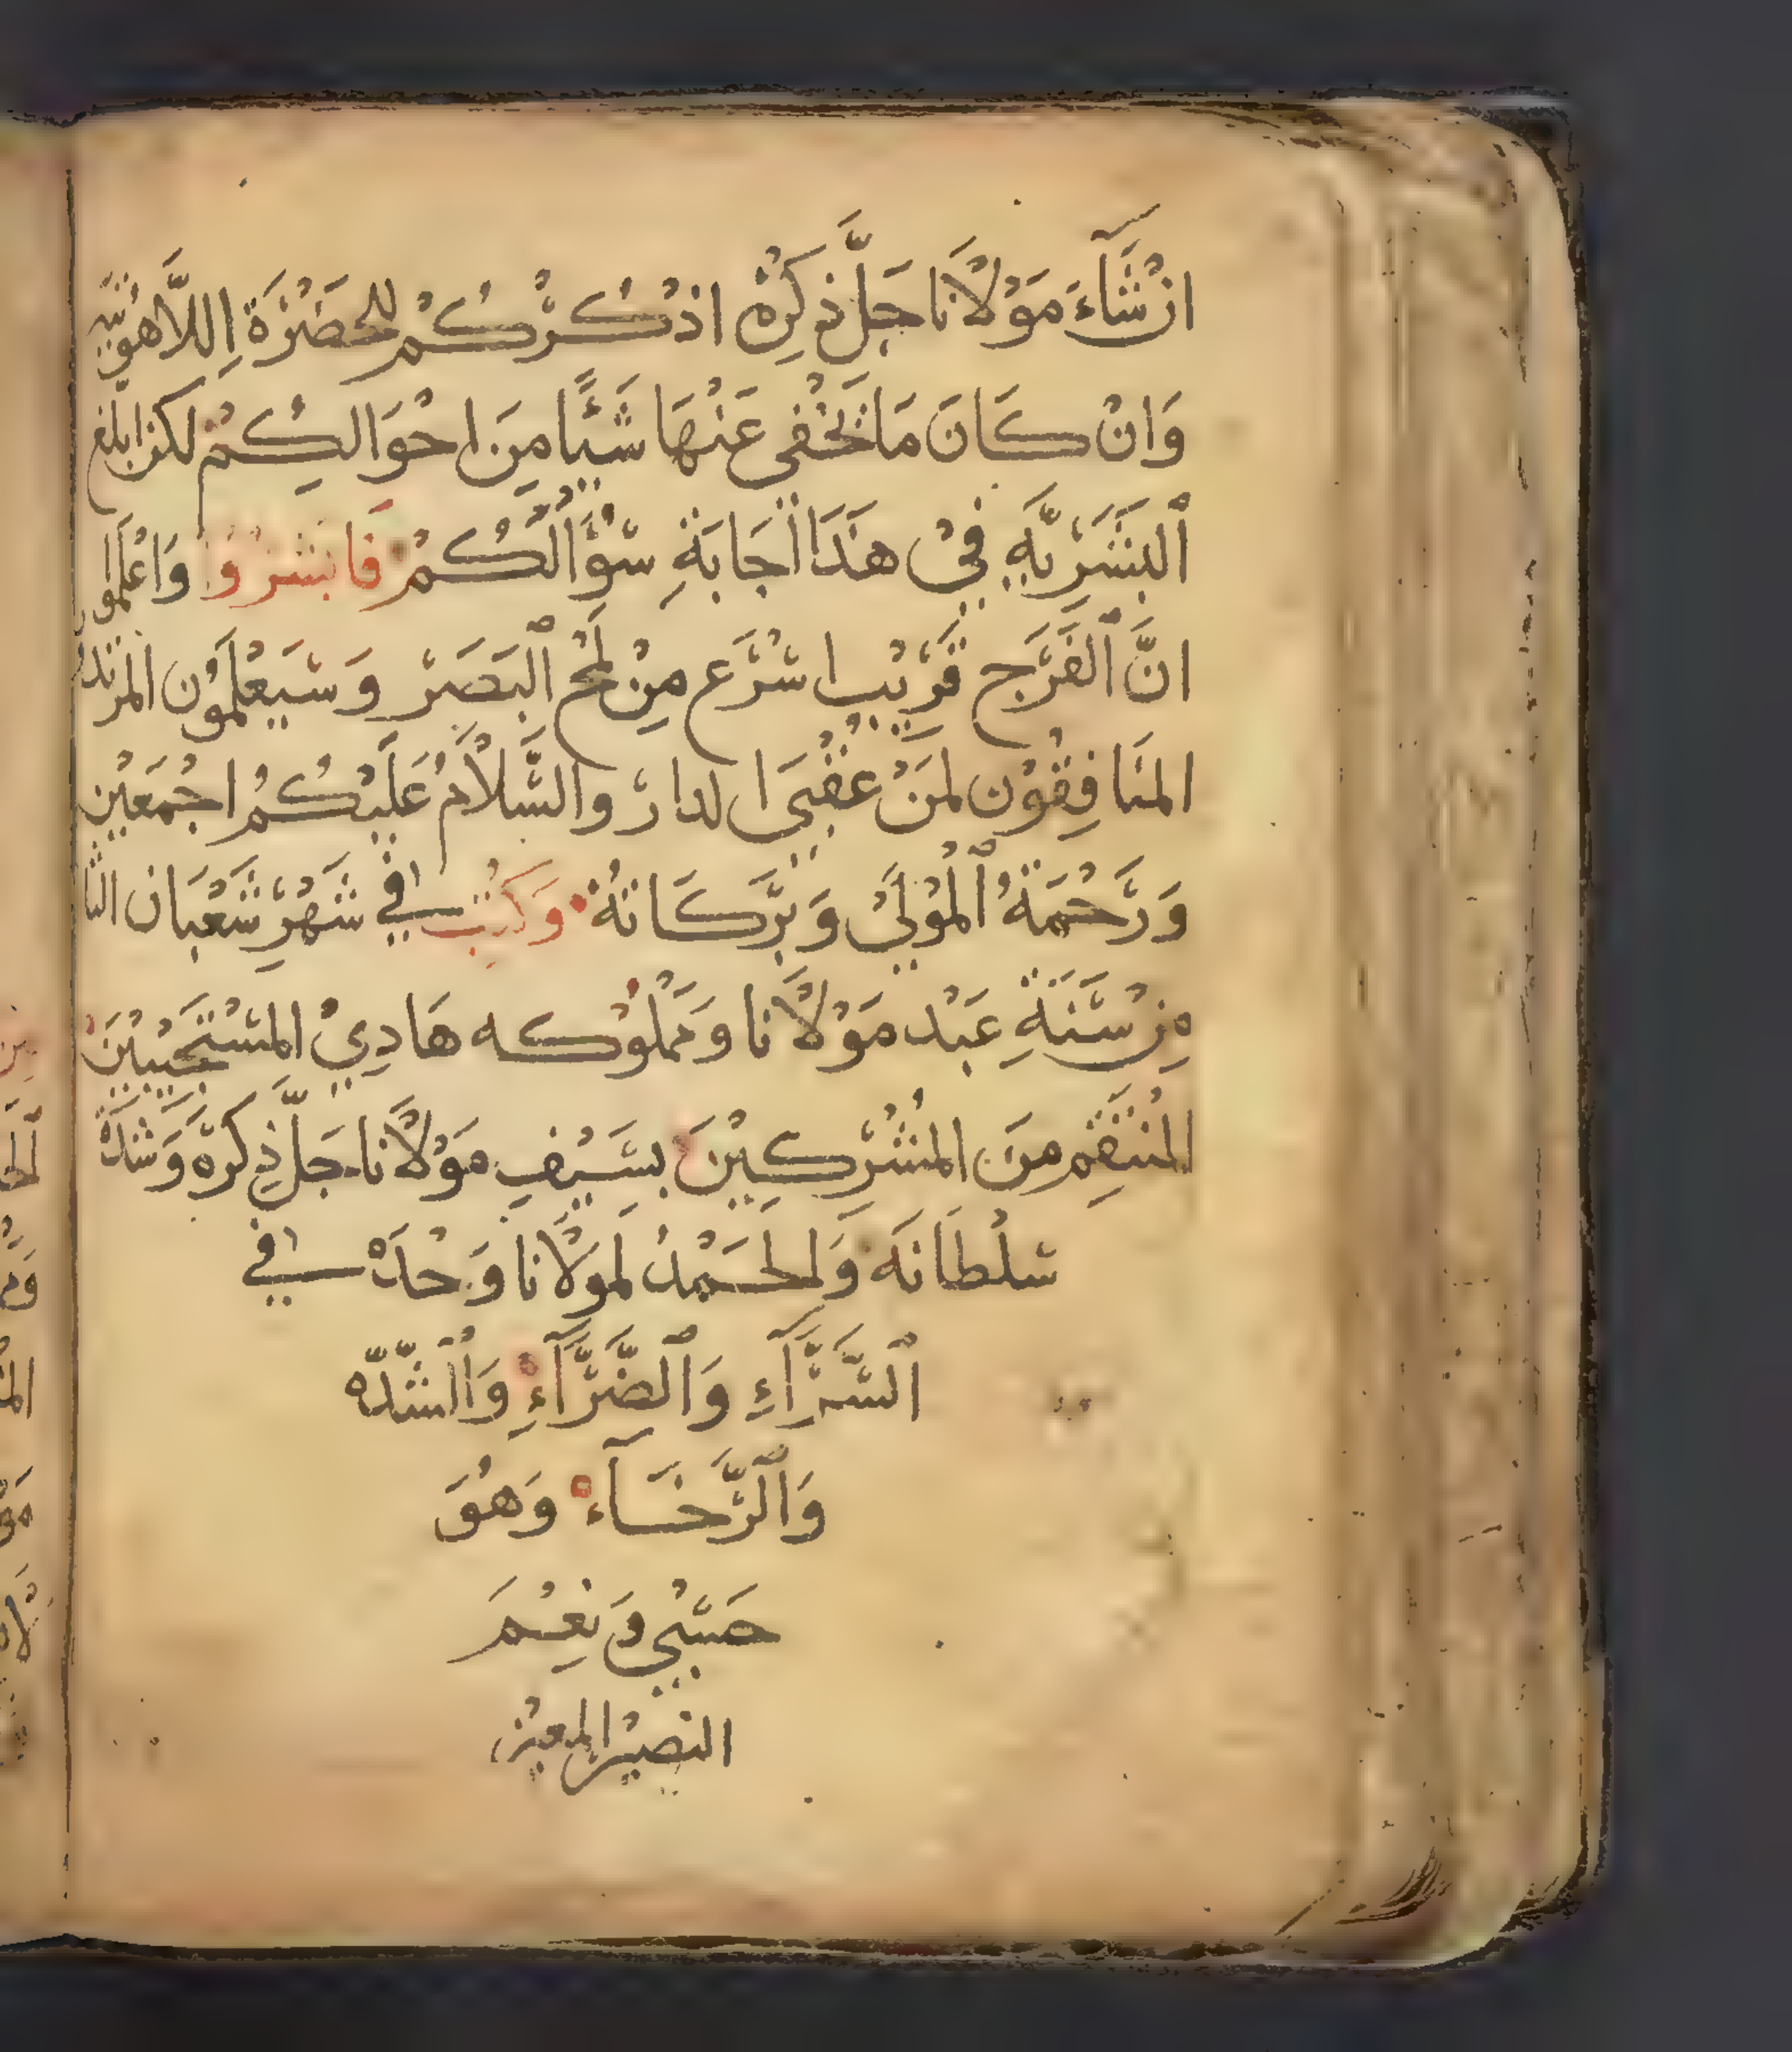 انْ شَآءَ مَوْلَانَا جَلَّ ذِكِرْهْ اذْكُرْكُمْ للحَضْرَةِ اللَّاهُوتيّه
وَانْ كَانَ مَا يَخْفى عَنْهَا شَيًْا مِنَ احْوَالِكُمْ لكن ابلغ
ٱلبَشَرِيَّهِ فيْ هَذَا اجَابَةِ سُؤَالَكُمْ فَابْشرُوْا وَاعْلَموا
انَّ ٱلفَرَج قَرِيْب اسْرَع مِنْ لَمْحِ ٱلبَصَرْ وَسَيَعْلَمَوُن المرتدو
المنَافِقُوْن لمَنْ عُقْبَى الدارْ والسَّلَامُ عَلَيْكُمُ اجْمَعَيْن
وَرَحْمَةُ ٱلْمُوْلَيْ وَبَرَكَاتهُ وَكتُبَ في شَهْرِ شَعْبَان الثا
مِنْ سَنَةِ عَبْد مَوْلَانا وَمَمْلُوْكه هَادِيْ المسْتَجَيْبيْنَ
المُنْتَقِمْ مِنَ المُشْرِكِيْنَ بسَيْفِ مَوْلَانَا جَلَّ ذِكرَهْ وَشدَّةْ
سُلْطَانَه وَالحَمْدُ لمَولَانا وَحْدَهْ في
ٱلسَّرَّآءِ وَٱلضَّرَّآءِ وَٱلْشدّه
وَٱلرَّخَآءْ وَهُوَ
حَسْبي وَنعْمَ
النصيْر المعيْن